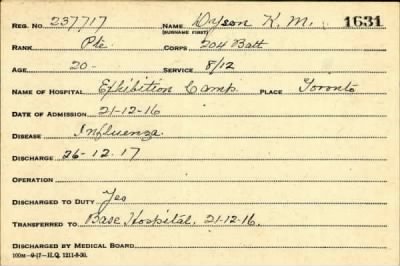 REG. NO. 237717 NAME Dyson K. M. 1631
(SURNAME FIRST)
RANK Pte CORPS 204 Batt
AGE 20- SERVICE 8/12
NAME OF HOSPITAL Exhibition Camp PLACE Toronto
DATE OF ADMISSION 21-12-16
DISEASE Influenza
DISCHARGE 26-12.17
OPERATION
DISCHARGED TO DUTY Yes
TRANSFERRED TO Base Hospital, 21-12-16.
DISCHARGED BY MEDICAL BOARD
100M-9-17-H.Q. 1211-8-30.